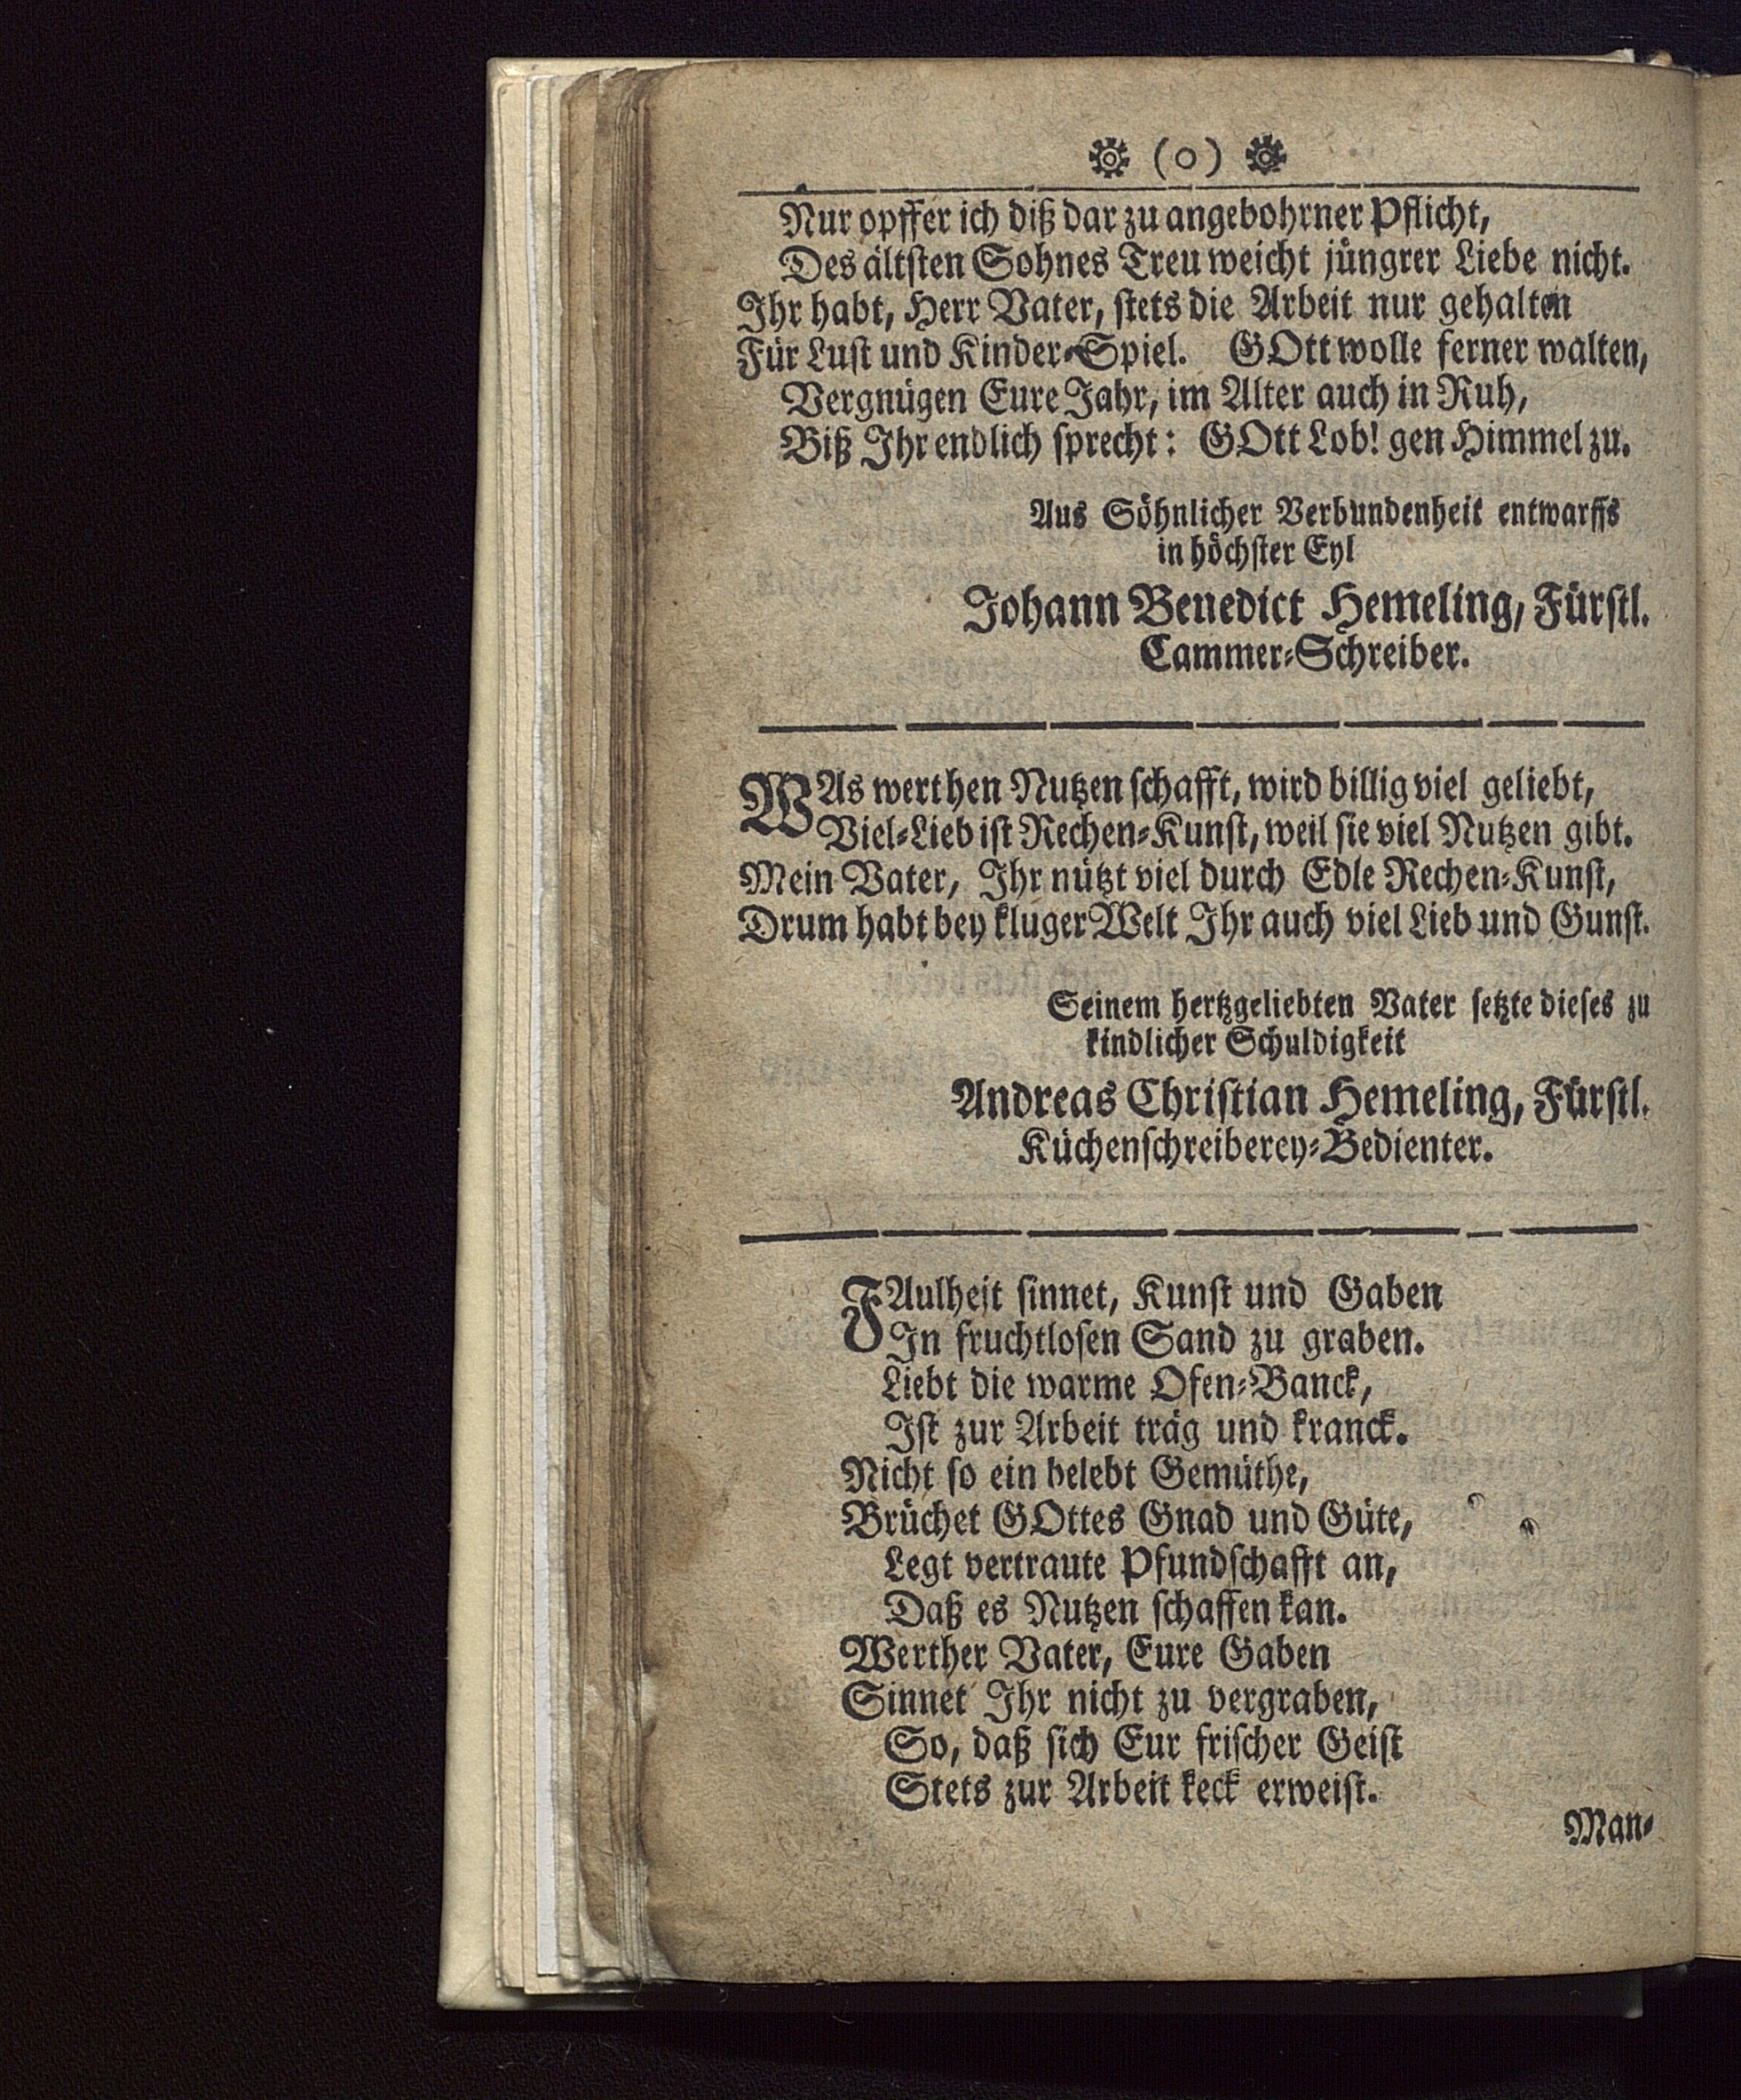 (o)
Nur opffer ich diß dar zu angebohrner Pflicht,
Des ältsten Sohnes Treu weicht jüngrer Liebe nicht.
Ihr habt, Herr Vater, stets die Arbeit nur gehalten
Für Lust und Kinder-Spiel. GOtt wolle ferner walten,
Vergnügen Eure Jahr, im Alter auch in Ruh,
Biß Ihr endlich sprecht: GOtt Lob! gen Himmel zu.
Aus Söhnlicher Verbundenheit entwarffs
in höchster Eyl
Johann Benedict Hemeling, Fürstl.
Cammer-Schreiber.
WAs werthen Nutzen schafft, wird billig viel geliebt,
Viel-Lieb ist Rechen-Kunst, weil sie viel Nutzen gibt.
Mein Vater, Ihr nützt viel durch Edle Rechen-Kunst,
Drum habt bey kluger Welt Ihr auch viel Lieb und Gunst.
Seinem hertzgeliebten Vater setzte dieses zu
kindlicher Schuldigkeit
Andreas Christian Hemeling, Fürstl.
Küchenschreiberey-Bedienter.
FAulheit sinnet, Kunst und Gaben
In fruchtlosen Sand zu graben.
Liebt die warme Ofen-Banck,
Ist zur Arbeit träg und kranck.
Nicht so ein belebt Gemüthe,
Brüchet GOttes Gnad und Güte,
Legt vertraute Pfundschafft an,
Daß es Nutzen schaffen kan.
Werther Vater, Eure Gaben
Sinnet Ihr nicht zu vergraben,
So, daß sich Eur frischer Geist
Stets zur Arbeit keck erweist.
Man-